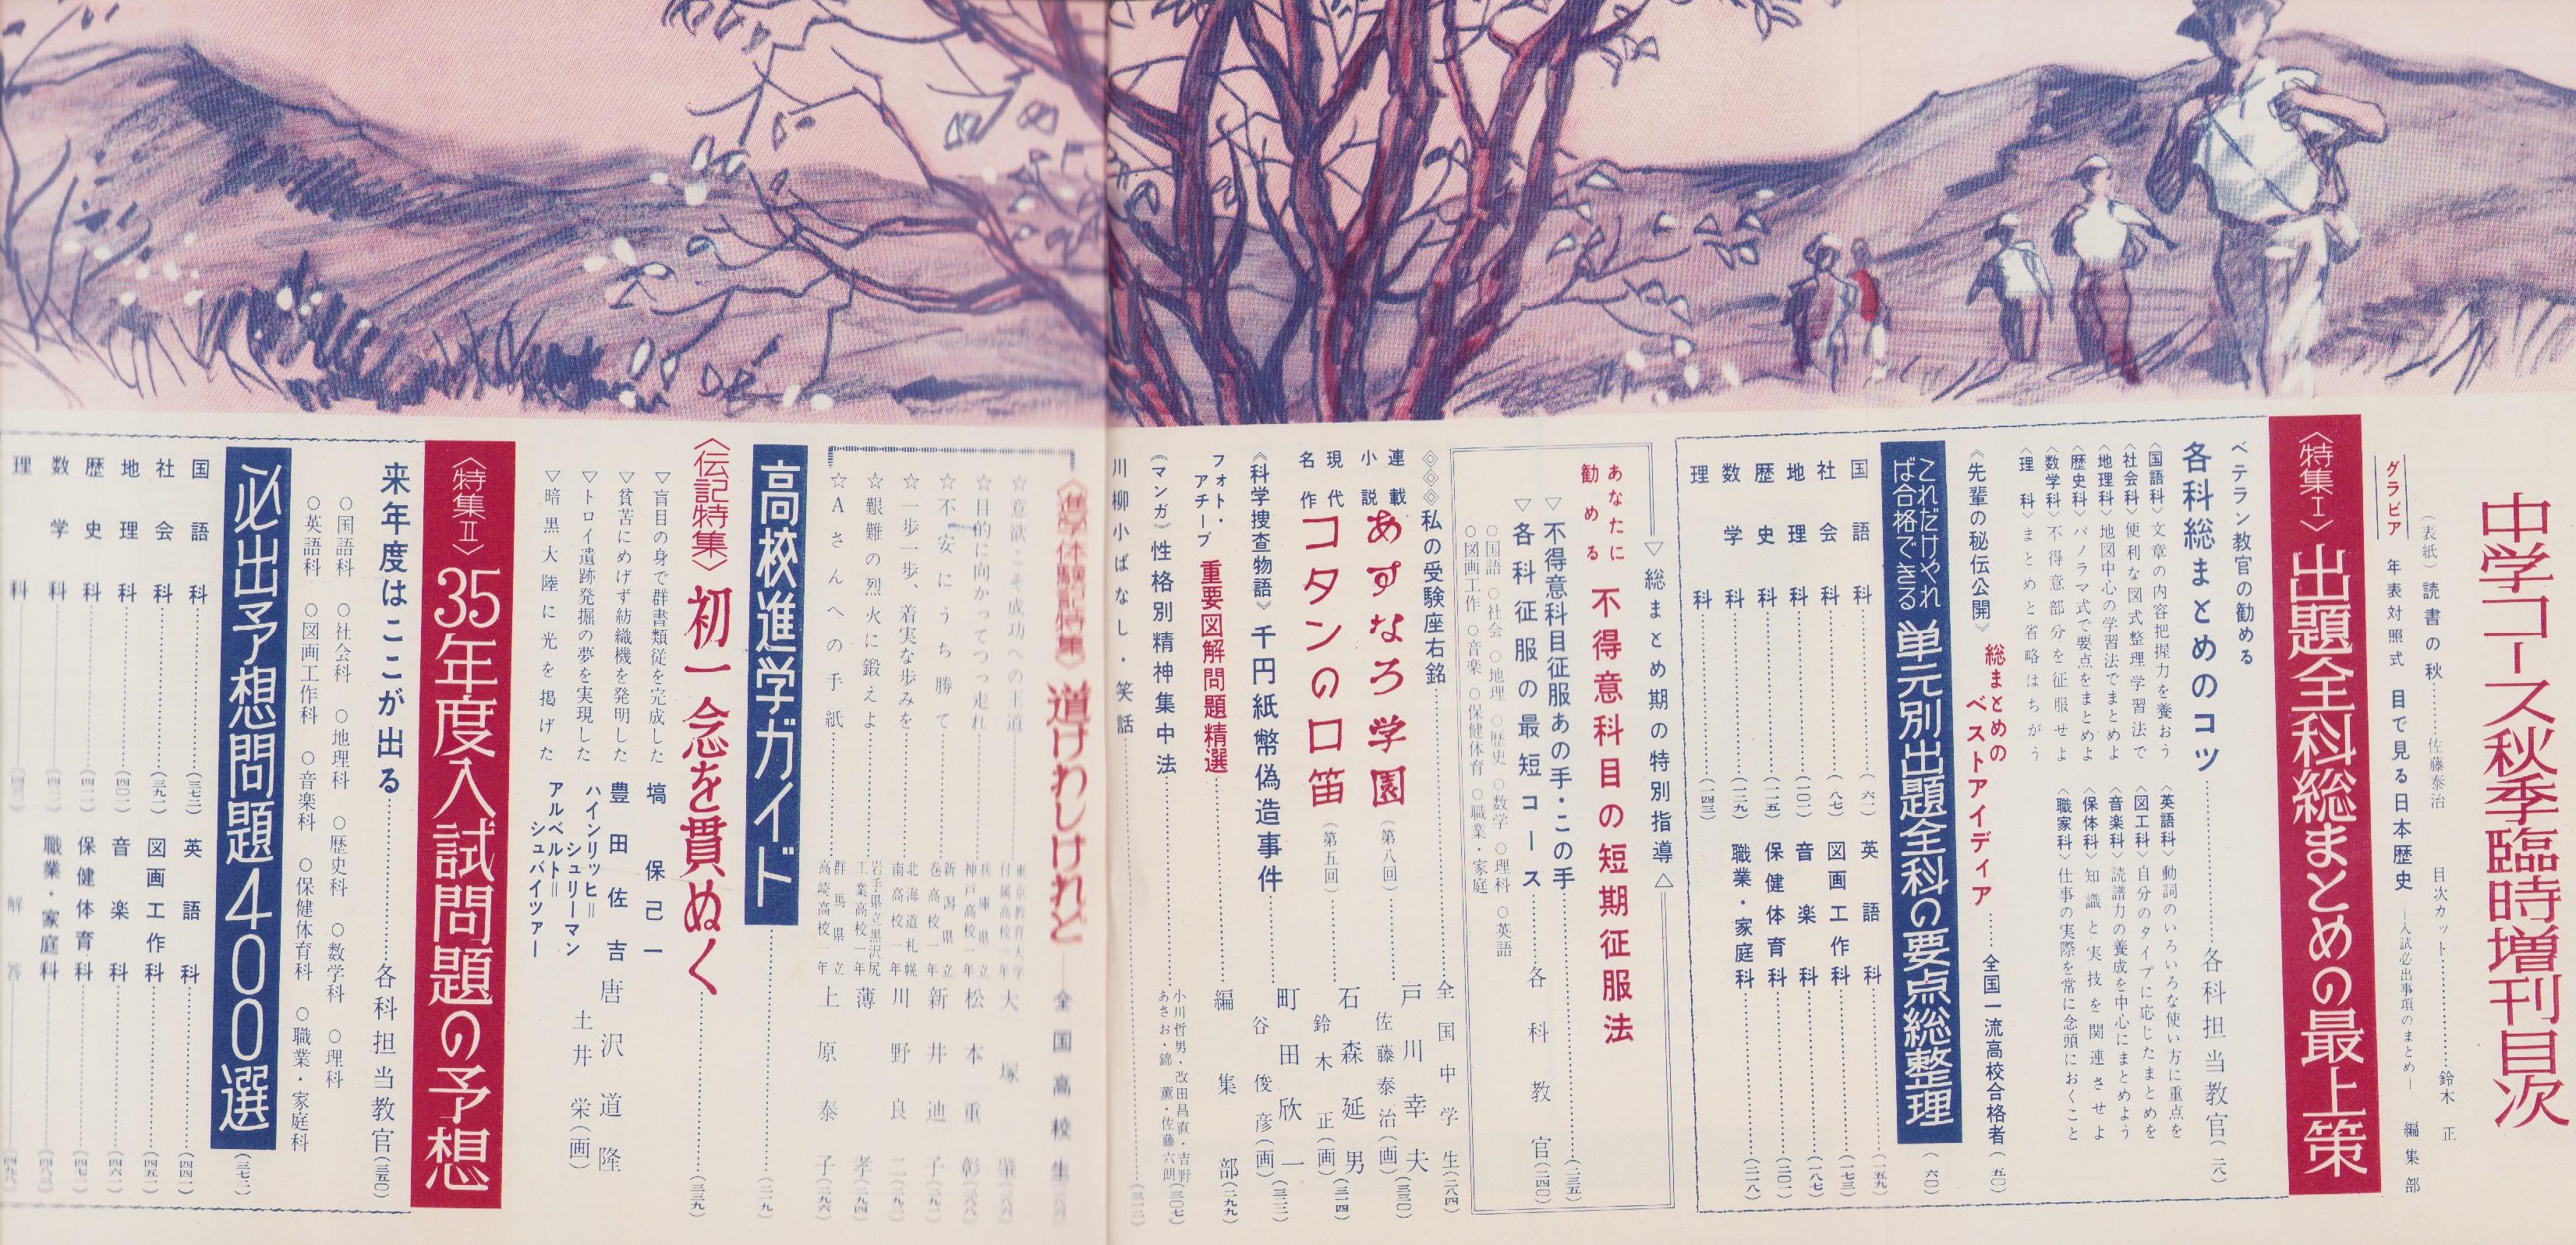 中学コース秋季臨時増刊目次
(表紙)読書の秋………佐藤泰治
目次カット………鈴木 正
グラビア 年表対照式 目で見る日本歴史 ―入試必出事項のまとめ― 編集部
〈特集Ⅰ〉出題全科総まとめの最上策
ベテラン教官の勧める
各科総まとめのコツ………各科担当教官(二八)
〈国語科〉文章の内容把握力を養おう
〈社会科〉便利な図式整理学習法で
〈地理科〉地図中心の学習法でまとめよ
〈歴史科〉パノラマ式で要点をまとめよ
〈数学科〉不得意部分を征服せよ
〈理 科〉まとめと省略はちがう
〈英語科〉動詞のいろいろな使い方に重点を
〈図工科〉自分のタイプに応じたまとめを
〈音楽科〉読譜力の養成を中心にまとめよう
〈保体科〉知識と実技を関連させよ
〈職家科〉仕事の実際を常に念頭におくこと
《先輩の秘伝公開》総まとめのベストアイディア……全国一流高校合格者(五〇)
これだけやれば合格できる 単元別出題全科の要点総整理(六〇)
国語科………(六一)
社会科………(八七)
地理科………(一〇一)
歴史科………(一一五)
数学科………(一二九)
理科………(一四三)
英語科………(一五九)
図画工作科………(一七三)
音楽科………(一八七)
保健体育科………(二〇一)
職業・家庭科………(二一八)
▽総まとめ期の特別指導△
あなたに勧める 不得意科目の短期征服法
▽不得意科目征服あの手・この手………(二三五)
▽各科征服の最短コース………各科教官(二四〇)
○国語 ○社会 ○地理 ○歴史 ○数学 ○理科 ○英語
○図画工作 ○音楽 ○保健体育 ○職業・家庭
◇◇◇私の受験座右銘………全国中学生(二八四)
連載小説 あすなろ学園(第八回)………戸川幸夫 佐藤泰治(画)(三三〇)
現代名作 コタンの口笛(第五回)………石森延男 鈴木 正(画)(三一四)
《科学捜査物語》千円紙幣偽造事件………町田欣一 谷 俊彦(画)(三二二)
フォト・アチーブ 重要図解問題精選………編集部(二九九)
(マンガ)性格別精神集中法………小川哲男・改田昌直・吉野あさお・錦 薫・佐藤六朗(三〇七)
川柳小ばなし・笑話………(三一二)
〈進学体験記特集〉道けわしけれど――全国高校生
☆意欲こそ成功への王道………東京教育大学付属高校一年 大塚 肇
☆目的に向かってつっ走れ………兵庫県立神戸高校一年 松本重彰(二八八)
☆不安にうち勝て………新潟県立巻高校一年 新井迪子(二九〇)
☆一歩一歩、着実な歩みを………北海道札幌南高校一年 川野良二(二九二)
☆艱難の烈火に鍛えよ………岩手県立黒沢尻工業高校一年 薄 孝(二九四)
☆Aさんへの手紙………群馬県立高崎高校一年 上原泰子(二九六)
高校進学ガイド………(二一九)
〈伝記特集〉初一念を貫ぬく………(三三九)
▽盲目の身で群書類従を完成した 塙 保己一
▽貧苦にめげず紡織機を発明した 豊田佐吉
▽トロイ遺跡発掘の夢を実現した ハインリッヒ=シュリーマン
▽暗黒大陸に光を掲げた アルベルト=シュバイツァー
唐沢道隆
土井 栄(画)
〈特集Ⅱ〉35年度入試問題の予想
来年度はここが出る………各科担当教官(三五〇)
○国語科 ○社会科 ○地理科 ○歴史科 ○数学科 ○理科
○英語科 ○図画工作科 ○音楽科 ○保健体育科 ○職業・家庭科
必出予想問題400選(三七二)
国語科………(三七三)
社会科………(三九一)
地理科………(四〇一)
歴史科………(四一一)
数学科………
理科………
英語科………(四四一)
図画工作科………(四五一)
音楽科………(四六一)
保健体育科………(四七一)
職業・家庭科………
解答………